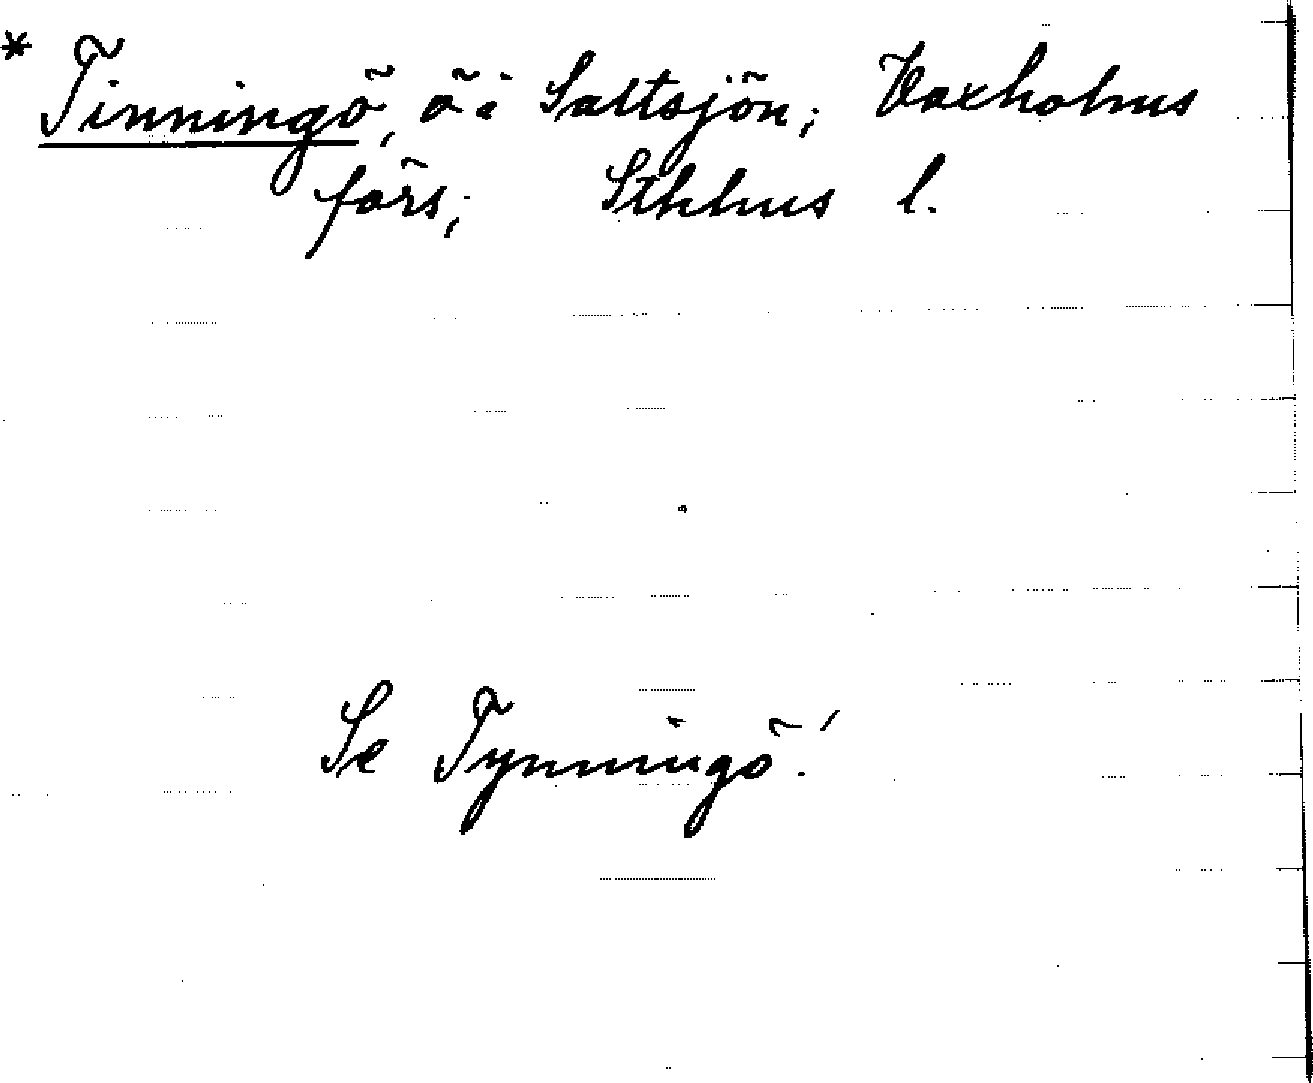 * Tinningö, ö i Saltsjön; Vaxholms
förs; Sthlms l.
Se Tynningö!